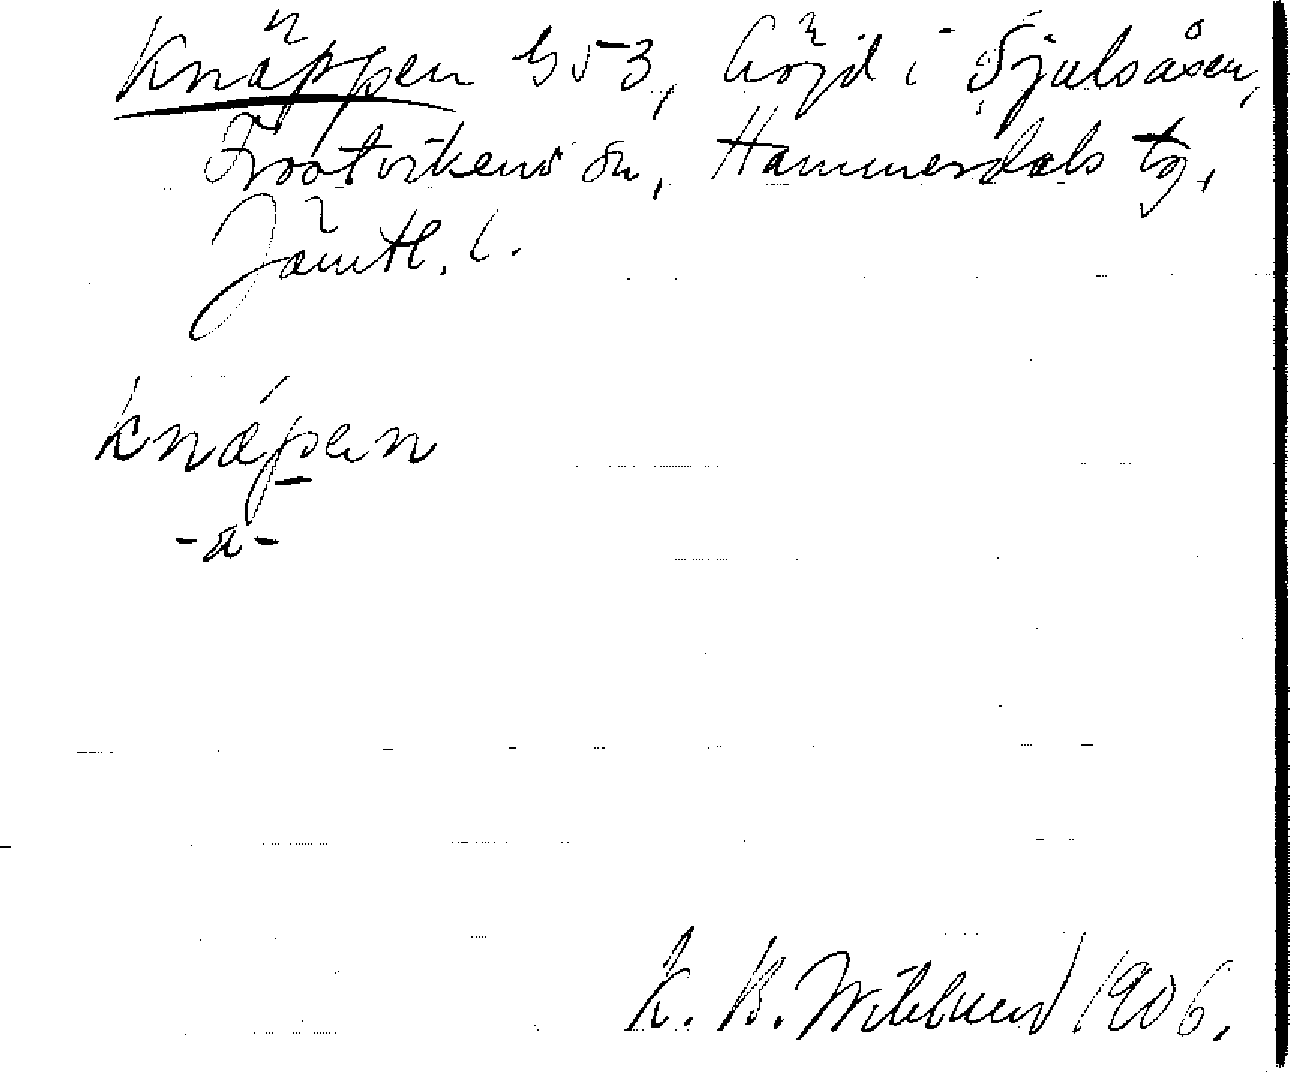 Knäppen G 53, höjd i Sjulsåsen,
Frostvikens sn, Hammerdals tg,
Jämtl. l.
knǽpen
-a-
K. B. Wiklund 1906.